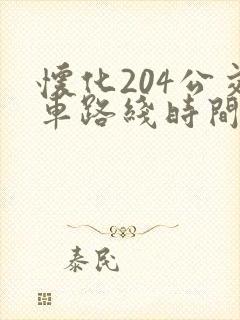 懷化204公交
車路綫時間
泰民